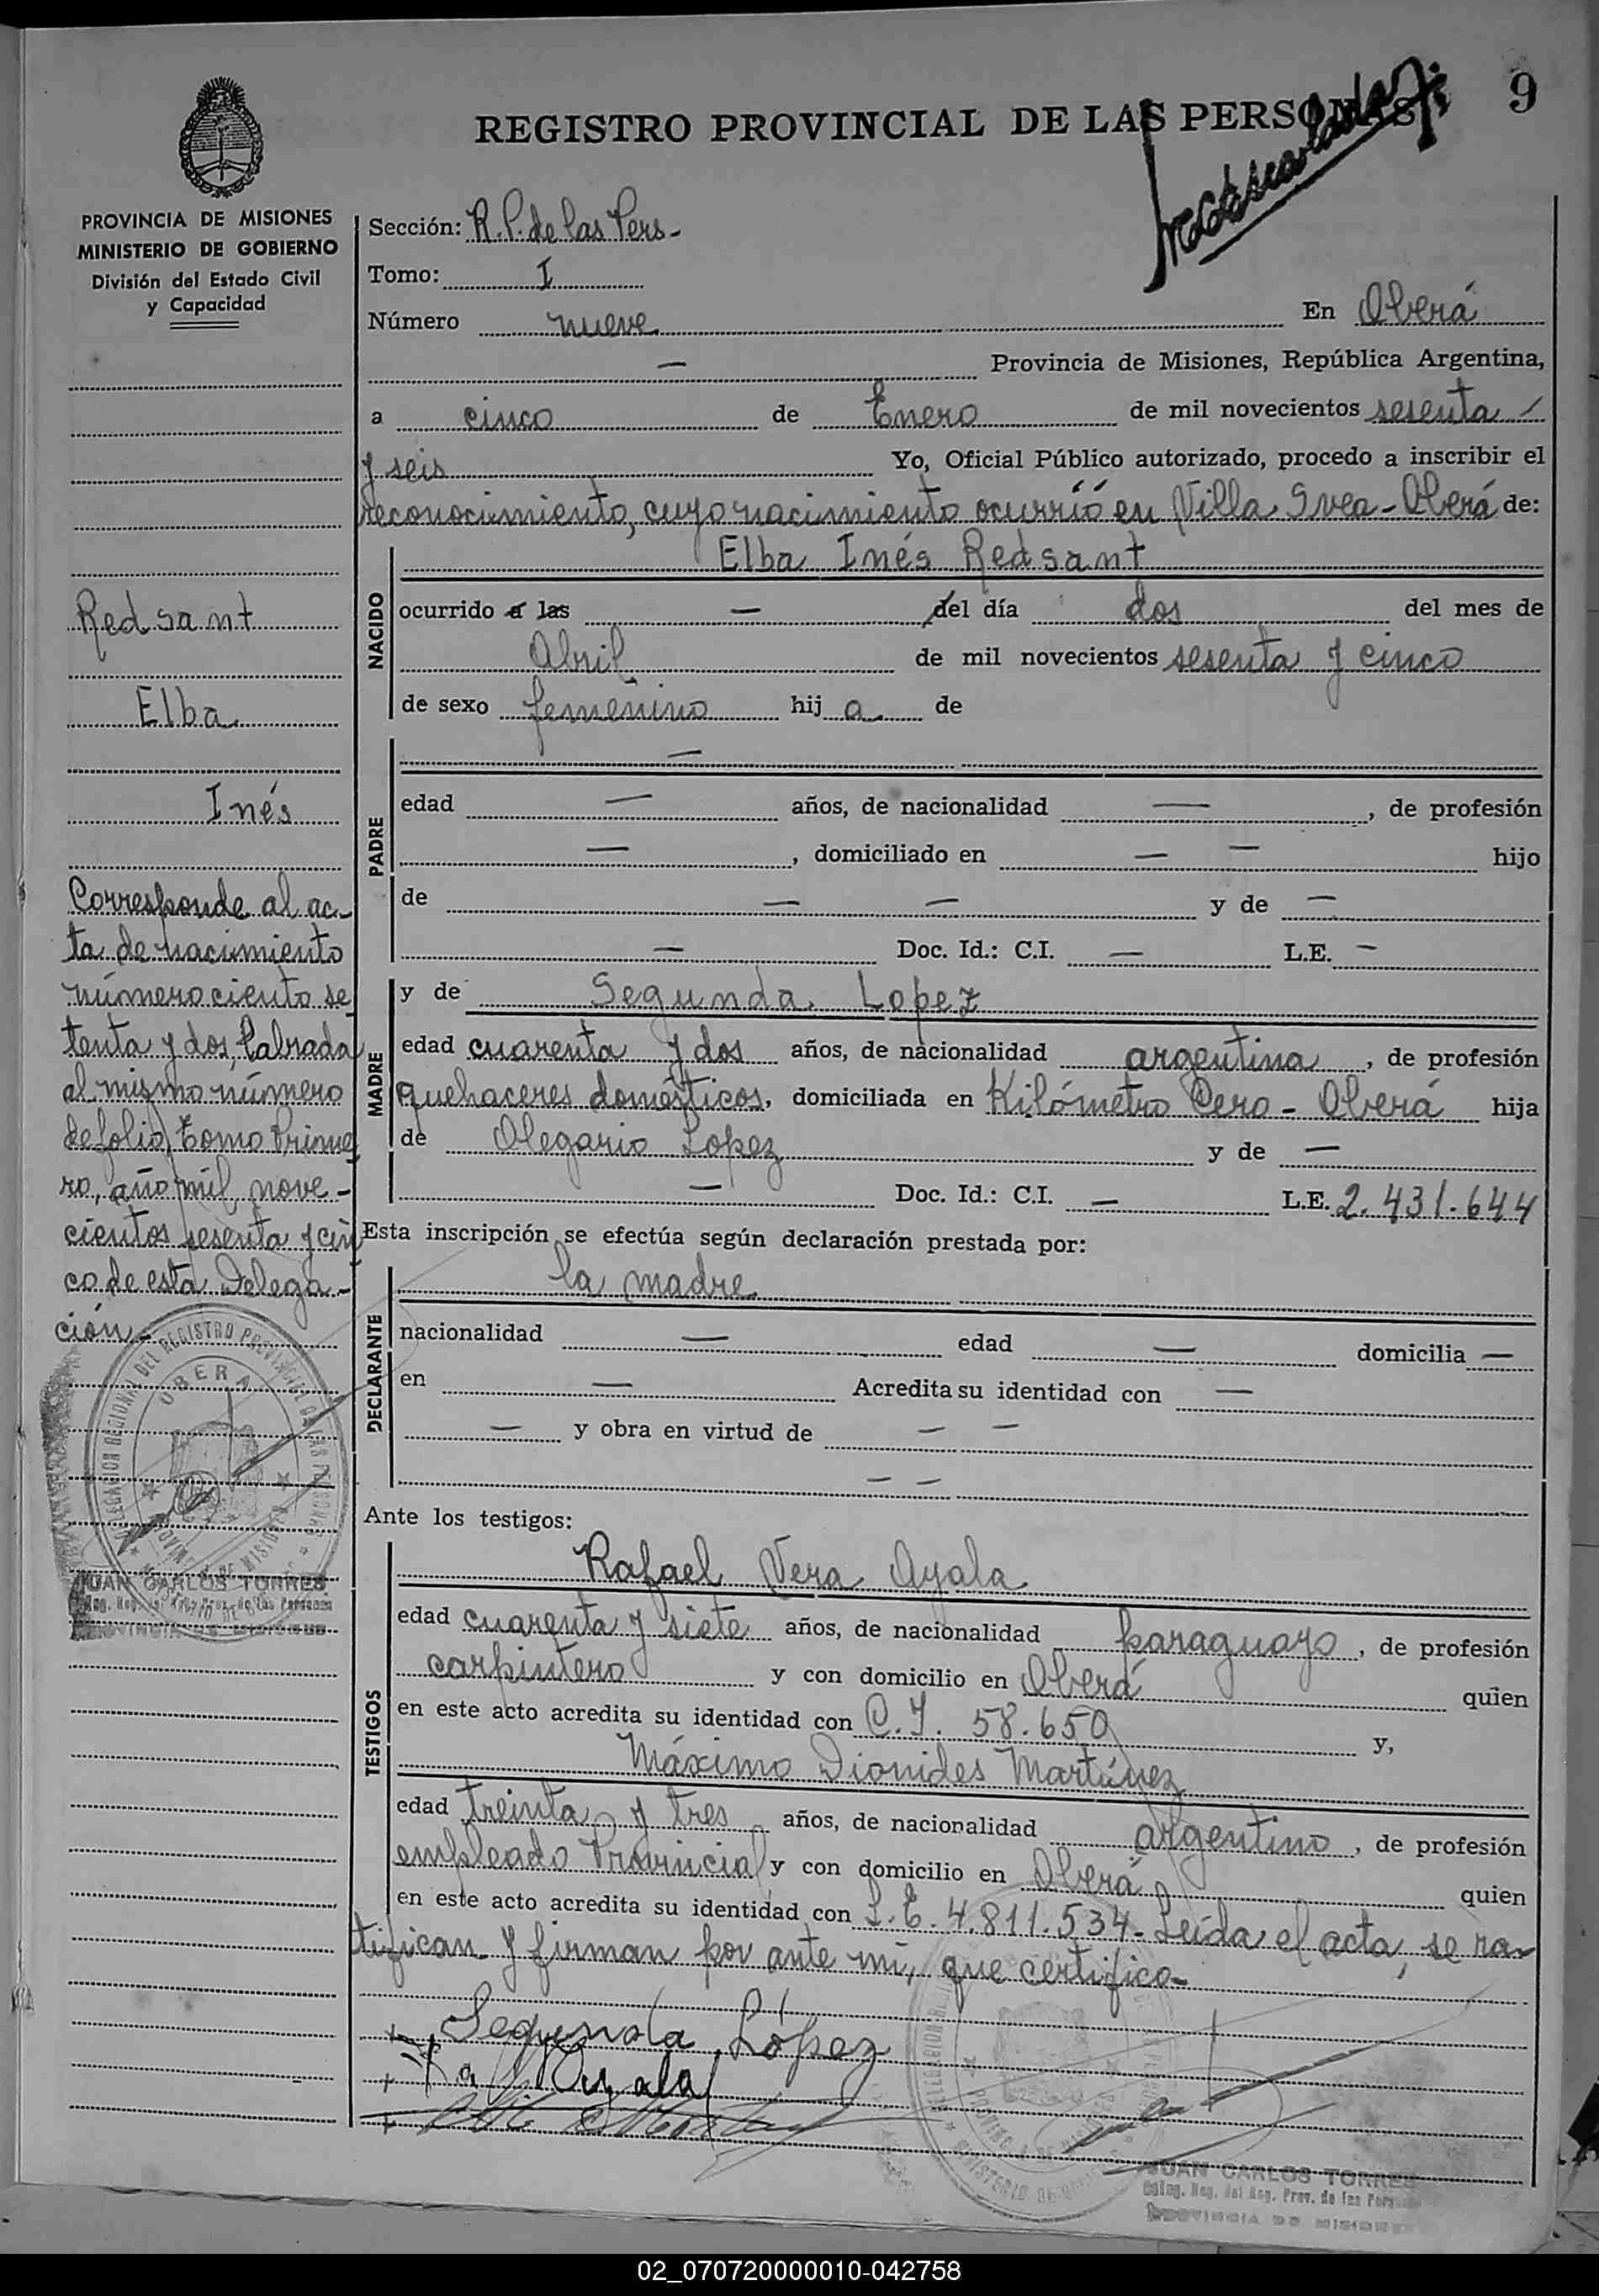 9
REGISTRO PROVINCIAL DE LAS PERSONAS
PROVINCIA DE MISIONES
MINISTERIO DE GOBIERNO
División del Estado Civil
y Capacidad
Sección: R.P. de las Pers-
Tomo: I
Número nueve En Oberá
— Provincia de Misiones, República Argentina,
a cinco de Enero de mil novecientos sesenta
y seis Yo, Oficial Público autorizado, procedo a inscribir el
reconocimiento, cuyo nacimiento ocurrió en Villa Svea - Oberá de:
NACIDO
Elba Inés Redsant
ocurrido a las — del día dos del mes de
Abril de mil novecientos sesenta y cinco
de sexo femenino hij a de
PADRE
—
edad — años, de nacionalidad —, de profesión
—, domiciliado en — — hijo
de — — y de —
— Doc. Id.: C.I. — L.E. —
MADRE
y de Segunda Lopez
edad cuarenta y dos años, de nacionalidad argentina, de profesión
quehaceres domésticos, domiciliada en Kilómetro Cero - Oberá hija
de Olegario Lopez y de —
— Doc. Id.: C.I. — L.E. 2.431.644
Esta inscripción se efectúa según declaración prestada por:
DECLARANTE
la madre
nacionalidad — edad — domicilia —
en — Acredita su identidad con —
— y obra en virtud de — —
— —
Ante los testigos:
TESTIGOS
Rafael Vera Ayala
edad cuarenta y siete años, de nacionalidad paraguayo, de profesión
carpintero y con domicilio en Oberá quien
en este acto acredita su identidad con C.I. 58.650 y,
Máximo Dionides Martínez
edad treinta y tres años, de nacionalidad argentino, de profesión
empleado Provincial y con domicilio en Oberá quien
en este acto acredita su identidad con L.E. 4.811.534. Leída el acta, se ra-
tifican y firman por ante mi, que certifico-
Segunda López
Ayala
JUAN CARLOS TORRES
PROVINCIA DE MISIONES
Redsant
Elba
Inés
Corresponde al ac-
ta de nacimiento
número ciento se
tenta y dos, labrada
al mismo número
de folio, Tomo Prime
ro, año mil nove-
cientos sesenta y cin
co de esta Delega-
ción-
DELEGACION REGIONAL DEL REGISTRO PROVINCIAL DE LAS PERSONAS
OBERA
PROVINCIA DE MISIONES
JUAN CARLOS TORRES
PROVINCIA DE MISIONES
02_070720000010-042758